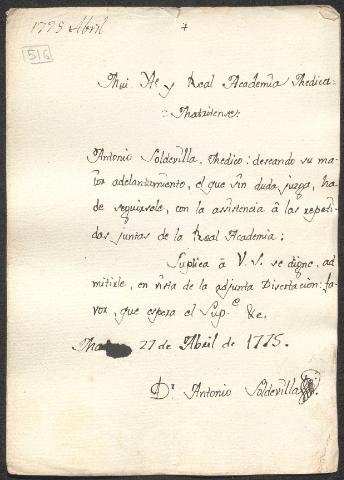 1775 Abril
516
Mui Ye. y Real Academia Medica-
Matritense:
Antonio Soldevilla, Medico: deseando su ma-
ior adelantamiento, el que sin duda juzga, ha
de seguirsele, con la assistencia â las repeti-
das juntas de la Real Academia:
Suplica â V. S. se digne, ad-
mitirle, en vista de la adjunta Disertacion: fa-
vor, que espera el Sup.e &c,
27 de Abril de 1775.
Dr Antonio Soldevilla